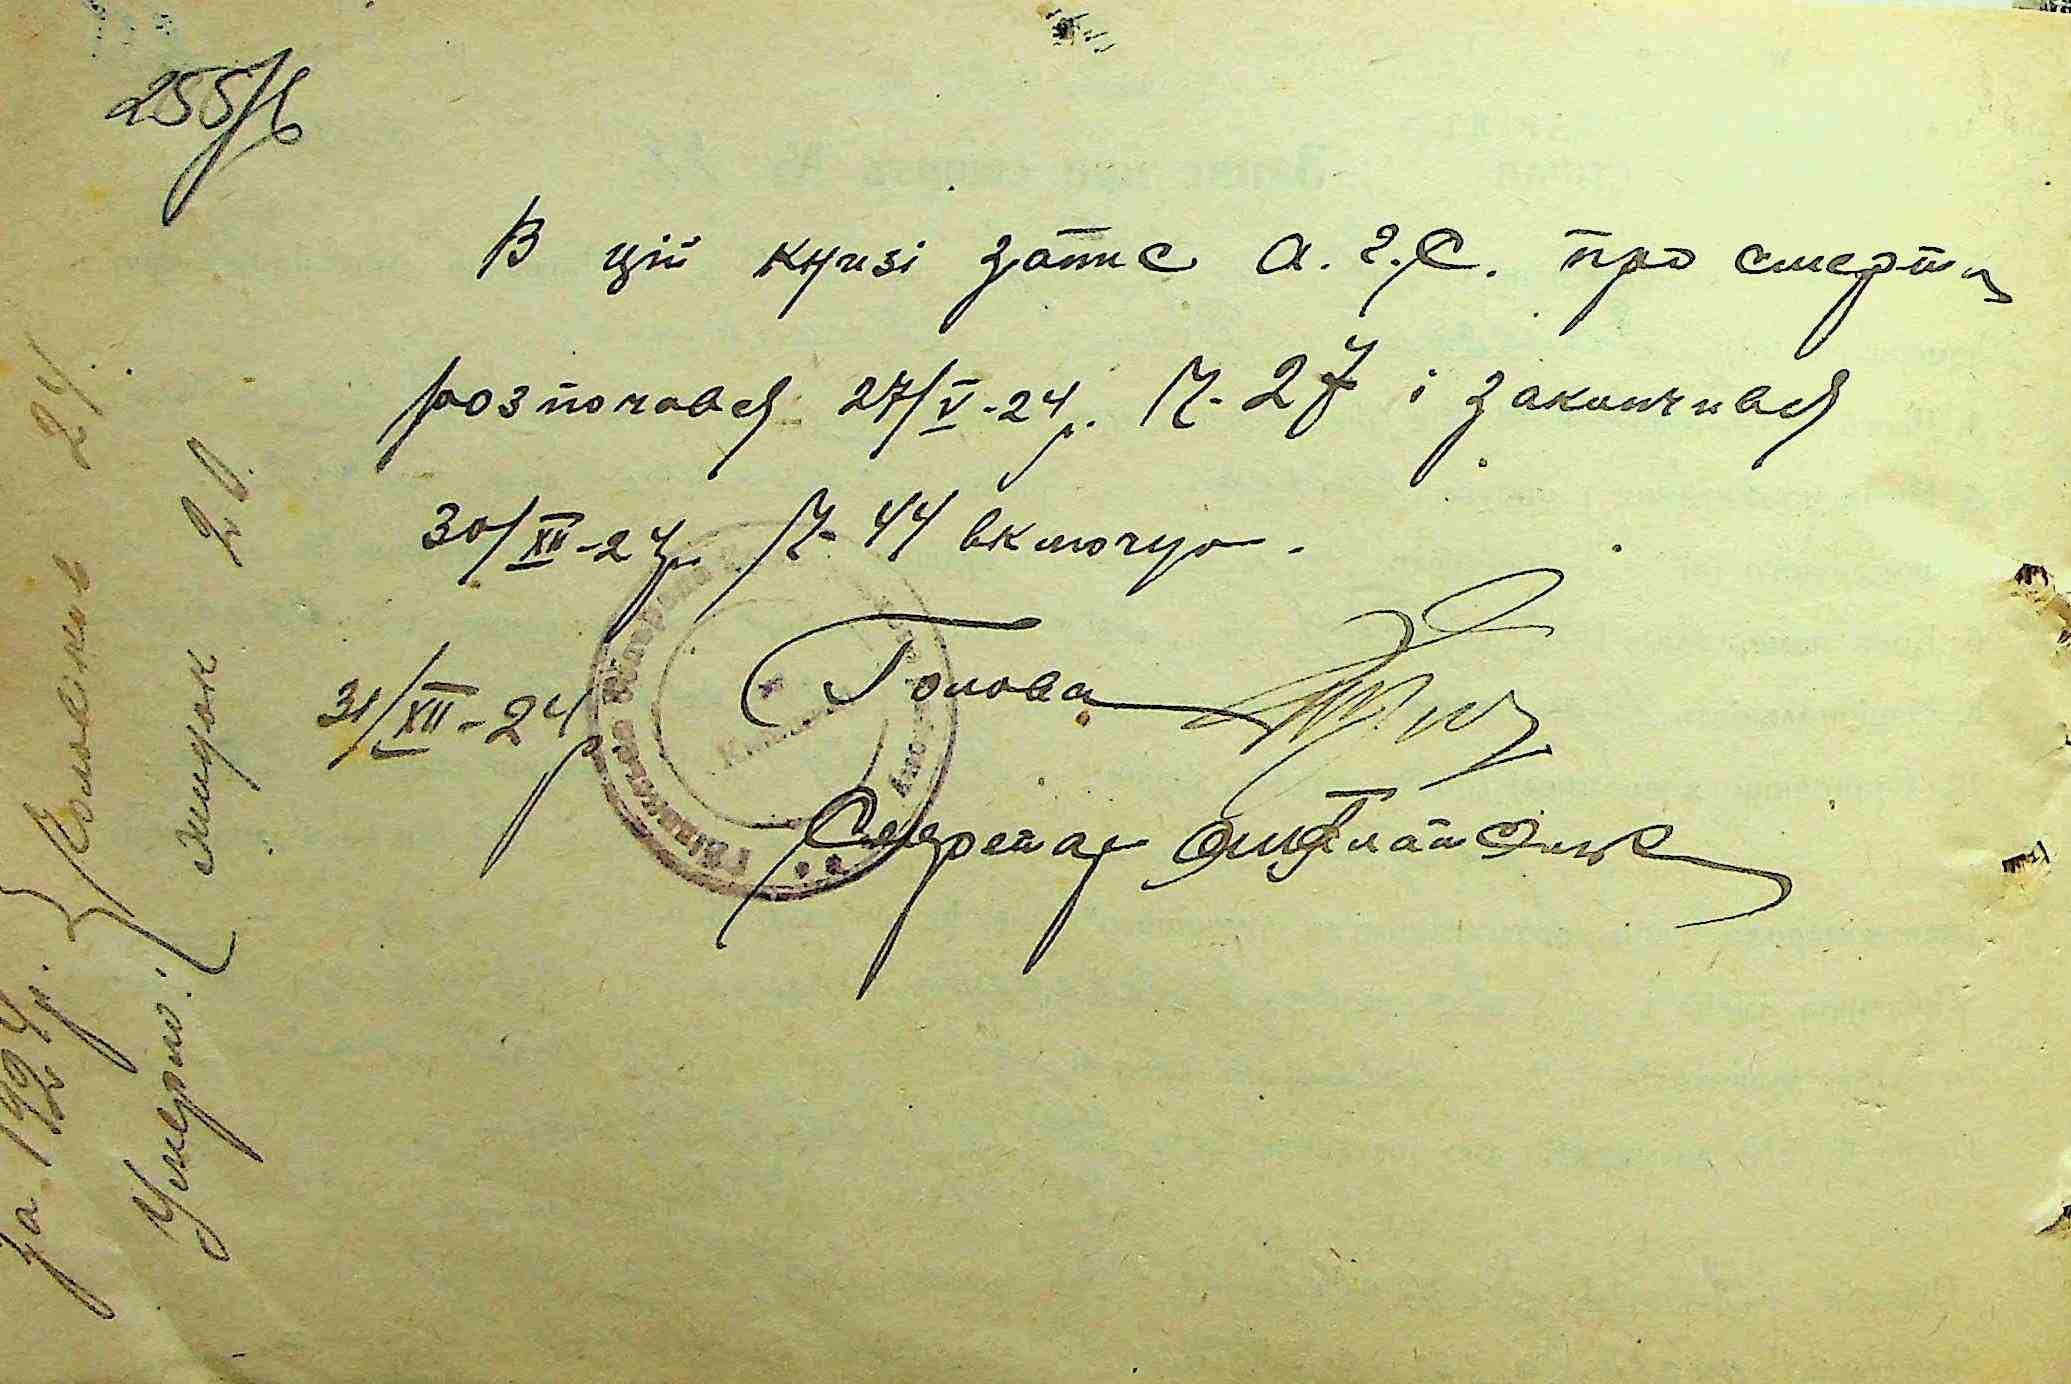 255
В цій книзі запис А.Г.С. про смерть
розпочався 27/V-24р. № 27 і закончився
30/XII-24р. № 44 включно.
31/XII-24р. Голова
Секретар
за 1924р.
Умерло:
Чоловіків 24.
жинок 20.